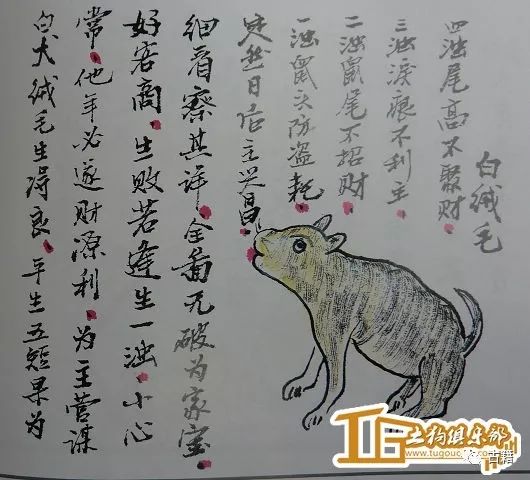 白绒毛
白犬绒毛生得良。平生五短果为
常。他年必遂财源利。为主营谋
好客商。生败若逢生一浊。小心
细看察其详。全面无破为家宝。
定然日后主兴昌。
一浊鼠头防盗耗。
二浊鼠尾不招财。
三浊泪痕不利主。
四浊尾高不聚财。
土狗俱乐部
古籍